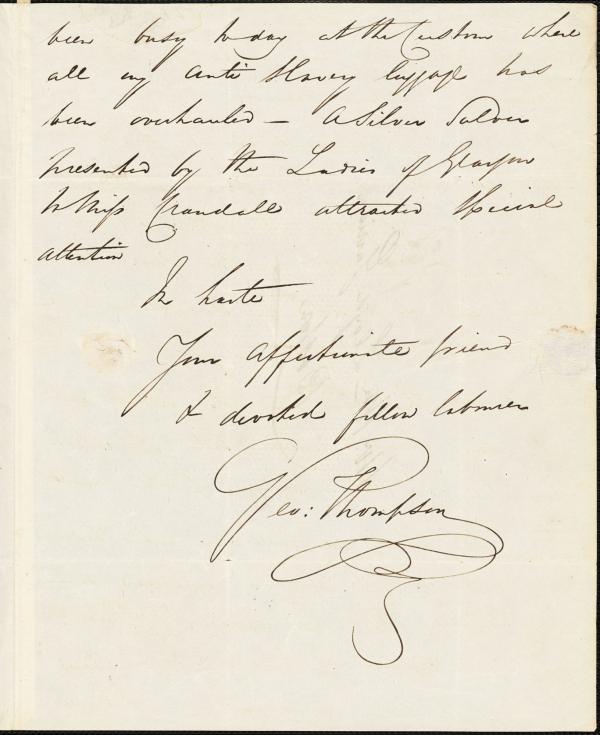 been busy to day at the Custom where
all my Anti Slavery luggage has
been overhauled — A Silver Salver
presented by the Ladies of Glasgow
to Miss Crandall attracted special
attention
In haste
Your affectionate friend
& devoted fellow labourer
Geo: Thompson